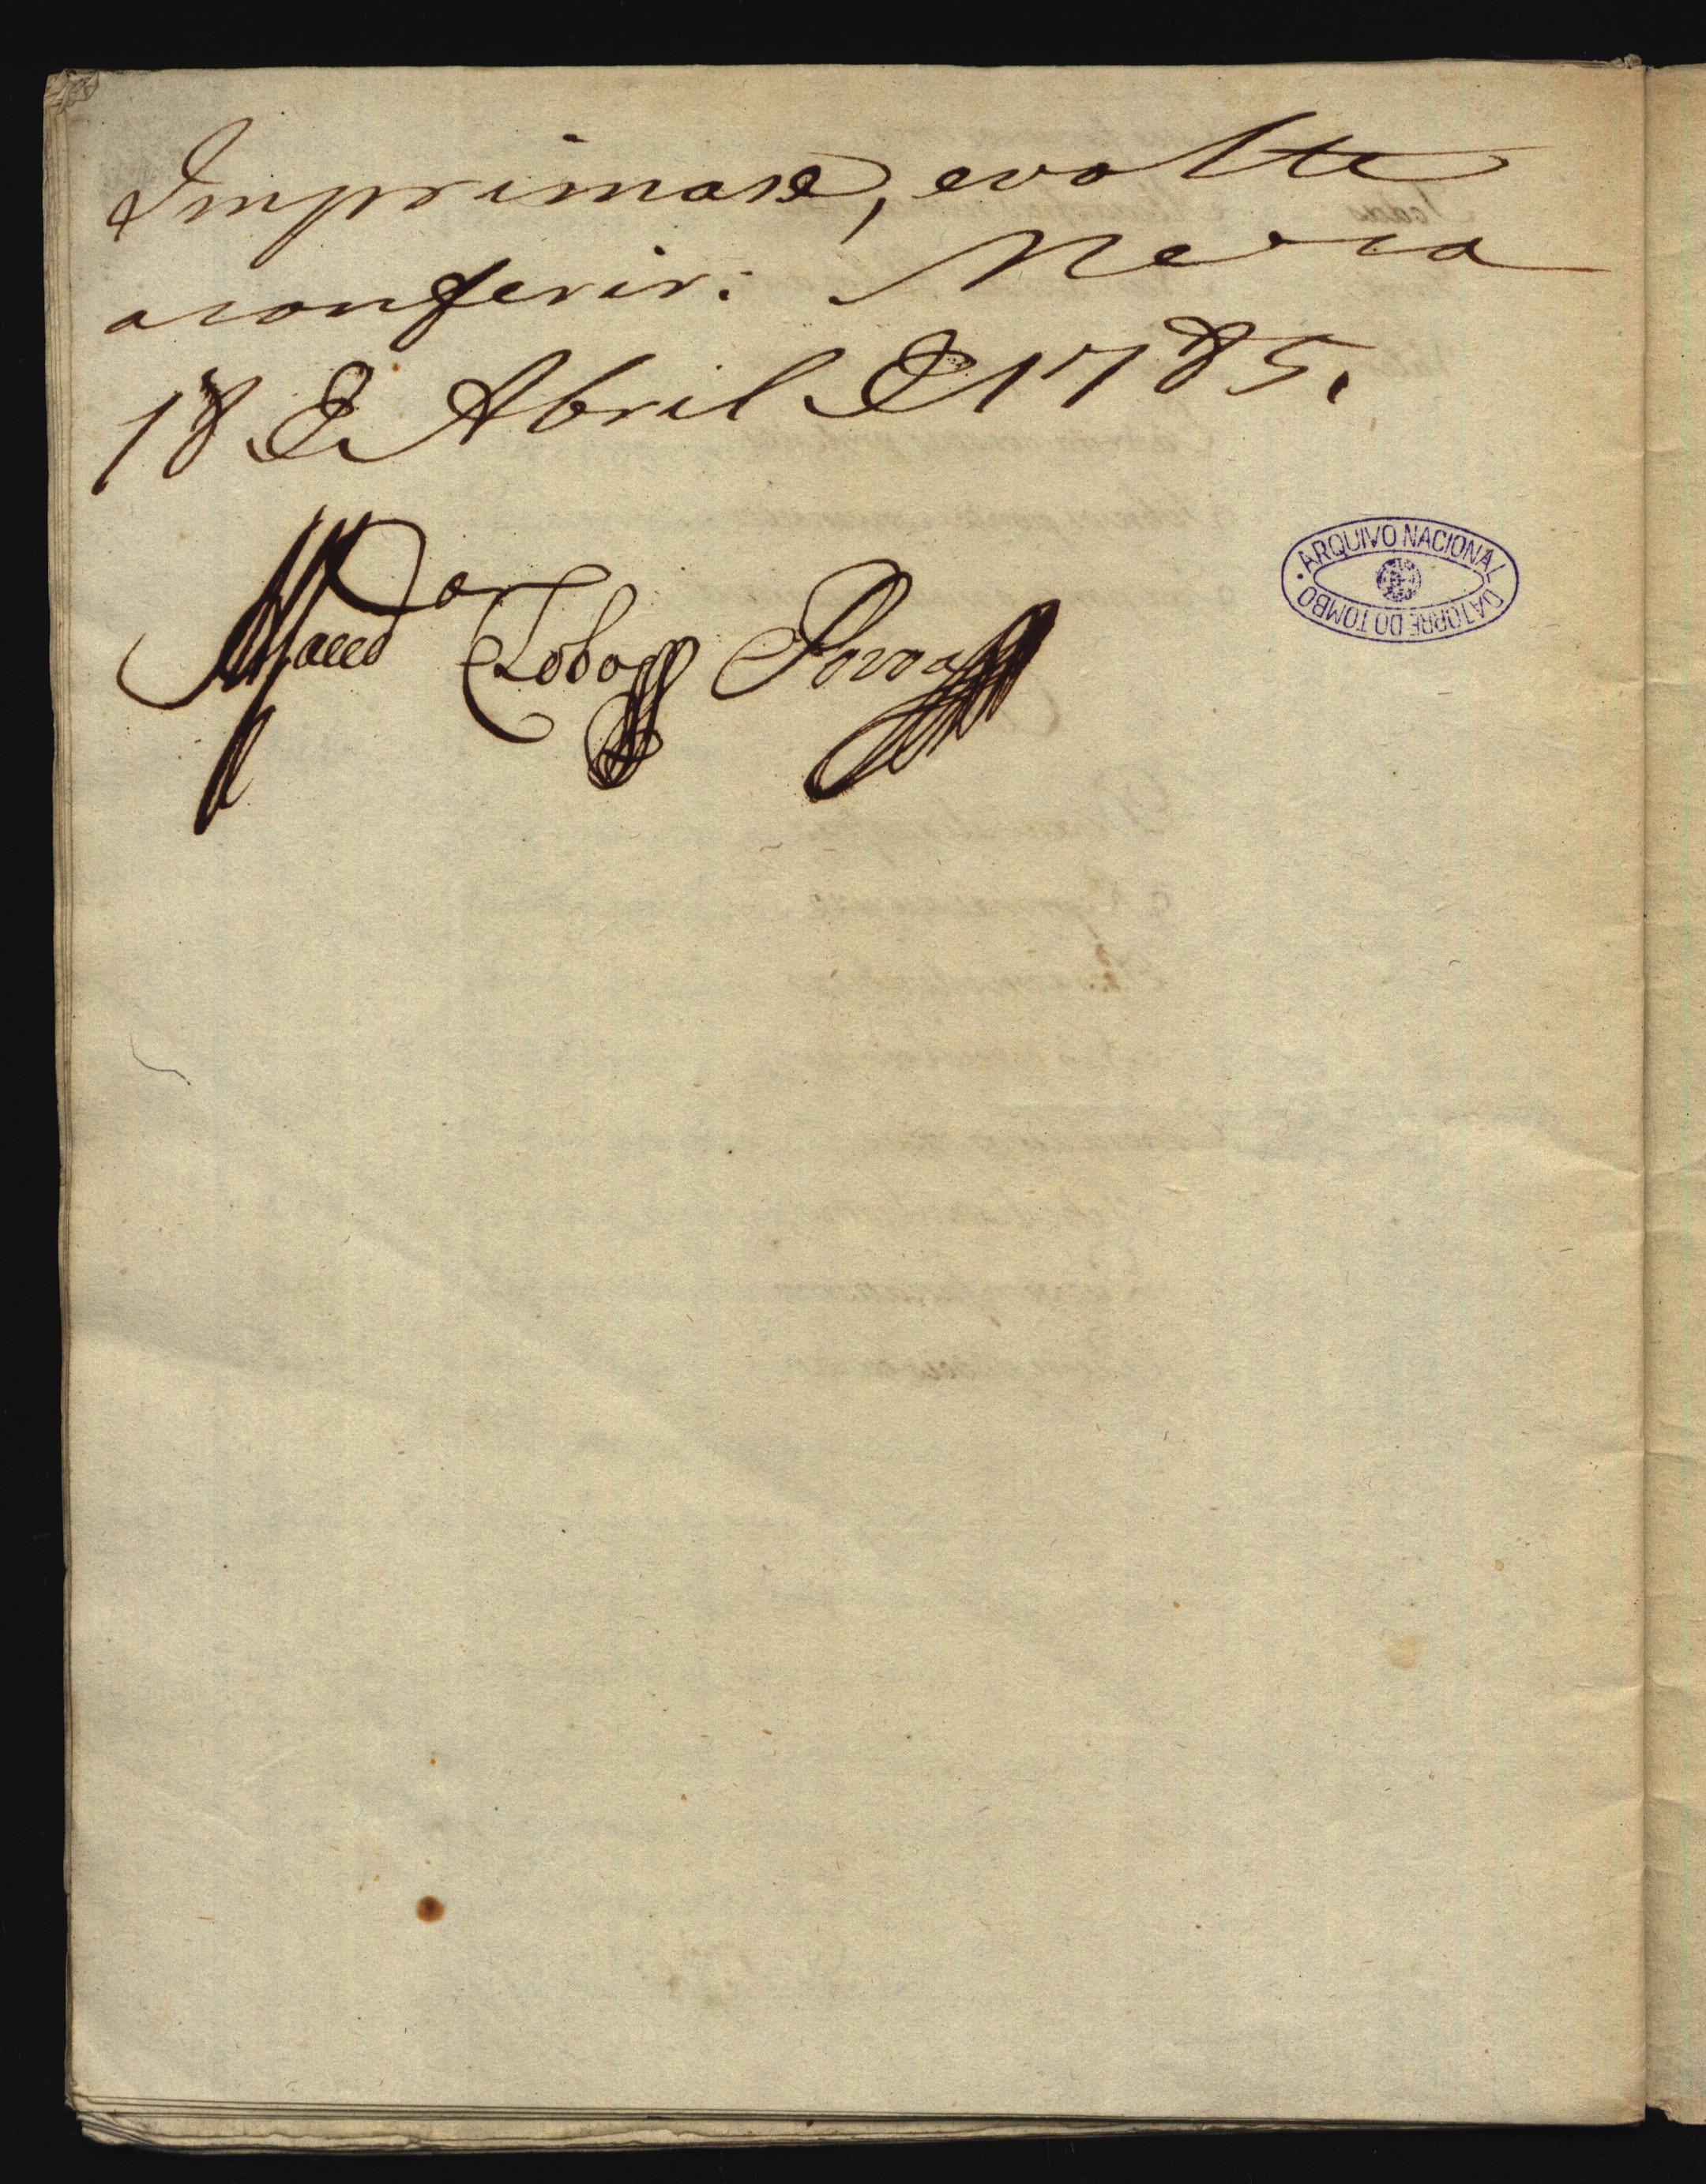 Imprimase, evolte
aconferir. Meza
18 de Abril de 1785.
Lobo
ARQUIVO NACIONAL
DA TORRE DO TOMBO